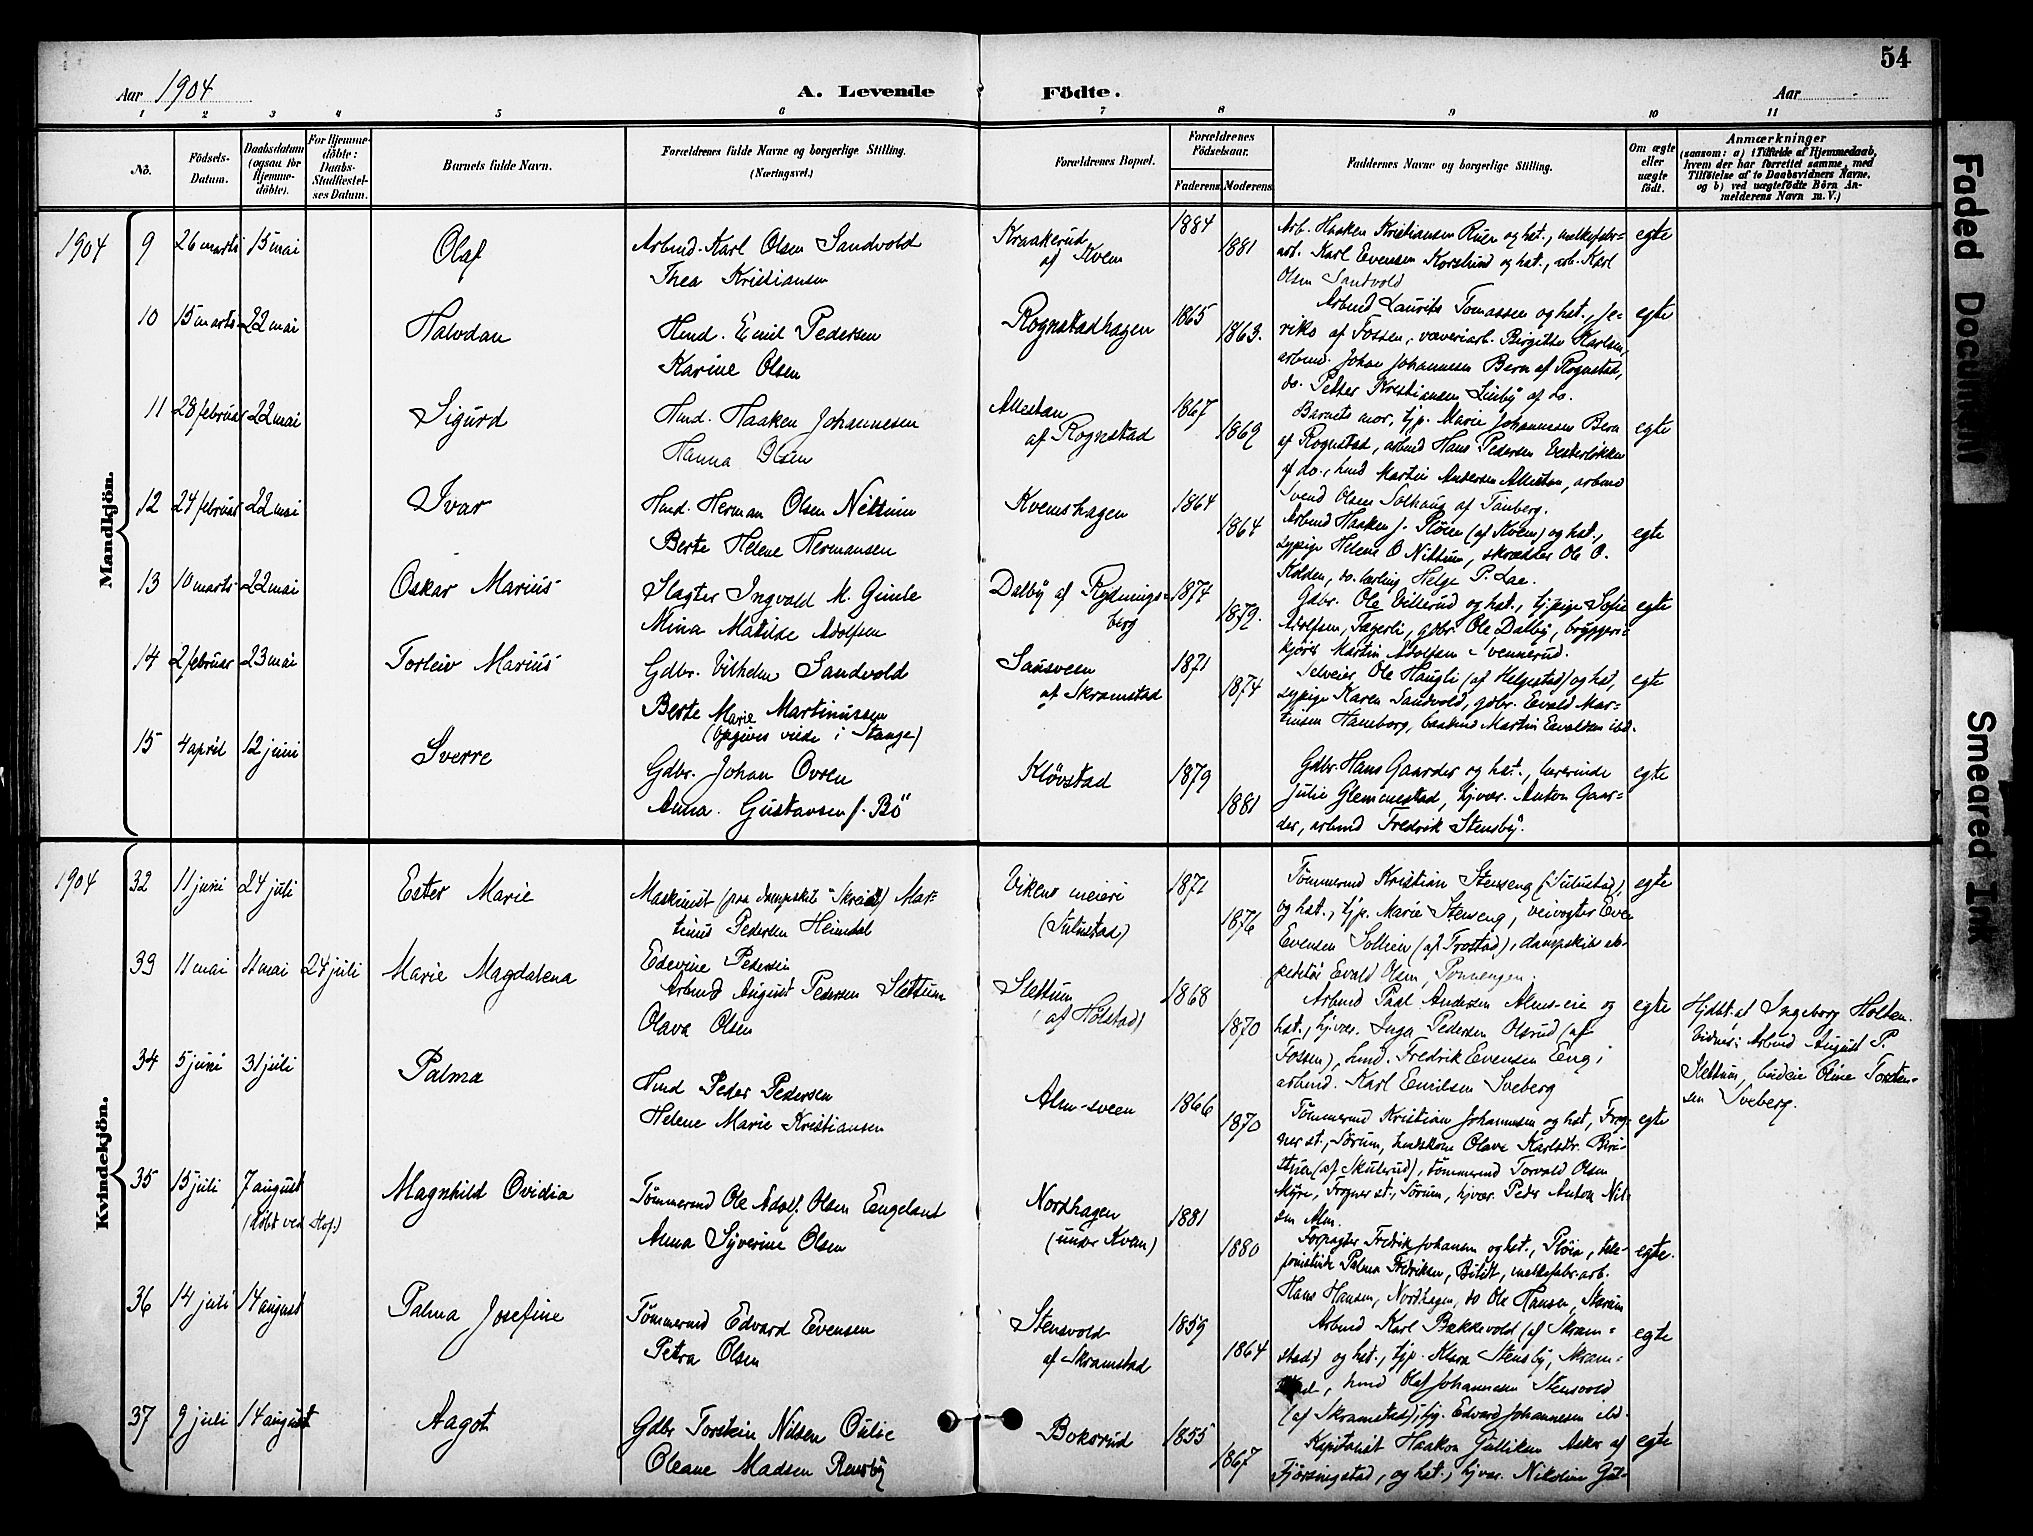 54
Aar 1904 A. Levende Födte. Aar
1 2 3 4 5 6 7 8 9 10 11
No. Födsels-Datum. Daabsdatum (ogsaa for Hjemme-döbte). For Hjemme-döbte: Daabs-Stadfæstel-ses Datum. Barnets fulde Navn. Forældrenes fulde Navne og borgerlige Stilling. (Næringsvei.) Forældrenes Bopæl. Forældrenes Födselsaar. Faderens Moderens Faddernes Navne og borgerlige Stilling. Om ægte eller uægte födt. Anmærkninger
(saasom: a) i Tilfælde af Hjemmedaab, hvem der har forrettet samme, med Tilföielse af to Daabsvidners Navne, og b) ved uægtefödte Börn An-melderens Navn m. V.)
Mandkjön.
1904 9 26 marts 15 mai Olaf Arbmd. Karl Olsen Sandvold
Thea Kristiansen
Kraakerud
af Kvem
1884 1881
Arb. Haaken Kristiansen Ruen og hst., melkefabr=
arb. Karl Evensen Korslund og hst., arb. Karl
Olsen Sandvold
egte
10 15 marts 22 mai Halvdan Hmd. Emil Pedersen
Karine Olsen
Rognstadhagen
1865 1863.
Arbmd Laurits Tomassen og hst., Je-
riko af Fossen, væveriarb. Birgitte Karlsen,
arbmd. Johan Johannesen Bern af Rognstad,
do. Petter Kristiansen Linby af do.
egte
11 28 februar 22 mai Sigurd Hmd. Haaken Johannesen
Hanna Olsen
Allestan
af Rognstad
1867 1869
Barnets mor, tjp. Marie Johannesen Bern
af Rognstad, arbmd Hans Pedersen Vesterløkken
af do., hmd Martin Andersen Allestan, arbmd
Svend Olsen Solhaug af Tanberg.
egte
12 24 februar 22 mai Ivar Hmd. Herman Olsen Nettum
Berte Helene Hermansen
Kvemshagen
1864 1864
Arbmd Haaken J. Pløen (af Kvem) og hst.,
sypige Helene O Nettum, skrædder Ole O.
Kolden, do. lærling Helge P. Lae.
egte
13 10 marts 22 mai Oskar Marius Slagter Ingvald M. Gimle
Mina Matilde Adolfsen
Dalby af Rydnings=
berg
1877 1879.
Gdbr. Ole Villerud og hst., tjpige Sofie
Adolfsen, Fagerli, gdbr. Ole Dalby, bryggeri=
kjører Martin Adolfsen Svennerud.
egte
14 2 februar 23 mai Torleiv Marius Gdbr. Vilhelm Sandvold
Berte Marie Martinussen
(opgives viede i Stange)
Sausveen
af Skramstad
1871 1874
Selveier Ole Haugli (af Helgestad) og hst,
sypige Karen Sandvold, gdbr. Evald Mar=
tinsen Haneborg, baasmd Martin Evaldsen ibd.
egte
15 4 april 12 juni Sverre Gdbr. Johan Ovren
Anna Gustavsen f. Bö
Kløvstad
1879 1881
Gdbr. Hans Gaarder og hst., lærerinde
Julie Glemmestad, hjvær. Anton Gaar=
der, arbmd Fredrik Stensby.
egte
Kvindekjön.
1904 32 11 juni 24 juli Ester Marie Maskinist (paa dampskib "Skreia") Mar=
tinus Pedersen Heimdal
Edevine Pedersen
Vikens meieri
(Sulustad)
1871 1876
Tømmermd Kristian Stenseng (Sulustad),
og hst., tjp. Marie Stenseng, veivogter Even
Evensen Sollien (af Frostad), dampskib ek-
peditør Evald Olsen, Tømmengen.
egte
33 11 mai 11 mai 24 juli Marie Magdalena Arbmd August Pedersen Slettum
Olava Olsen
Slettum
(af Hølstad)
1868 1870
Arbmd Paul Andersen Alms-eie og
hst., hjvær. Inga Pedersen Olsrud (af
Fossen), hmd. Fredrik Evensen Eng i
arbmd. Karl Emilsen Sveberg
egte
Hjdbt. at Ingeborg Holten.
Vidner: Arbmd August P.
Slettum, budeie Oline Torsten-
sen Sveberg.
34 5 juni 31 juli Palma Hmd Peder Pedersen
Helene Marie Kristiansen
Alm-sveen
1866 1870
Tømmermd Kristian Johannesen og hst, Frog-
ner st., Sørum, husdskone Olava Karlsdr. Biri-
stuen (af Skulerud), tømmermd Torvald Olsen
Myre, Frogner st., Sørum, hjvær. Peder Anton Nil-
sen Alm.
egte
35 15 juli 7 august
(døbt ved Hof.) Magnhild Ovidia Tømmermd Ole Adolf Olsen Engeland
Anna Syverine Olsen
Nordhagen
(under Kvem)
1881 1880
Forpagter Fredrik Johansen og hst., Pløen, tele-
fonistinde Palma Fredriksen, Bilitt, melkefabr.arb.
Hans Hansen, Nordhagen, do Ole Hansen, Starum
egte.
36 14 juli 14 august Palma Josefine Tømmermd Edvard Evensen
Petra Olsen
Stensvold
af Skramstad
1859 1864
Arbmd Karl Bækkevold (af Skram=
stad) og hst., tjp. Klara Stensby, Skram=
stad, hmd Olaf Johannesen Stensvold
(af Skramstad), tjg. Edvard Johannesen ibd.
egte
37 9 juli 14 august Aagot Gdbr Torstein Nilsen Oulie
Oleane Madsen Rensby
Boksrud
1855 1867
Kapitalist Haakon Gulliksen Asker af
Fjørsingstad, og hst., hjvær. Nikoline Gul-
egte
Faded Document
Smeared Ink